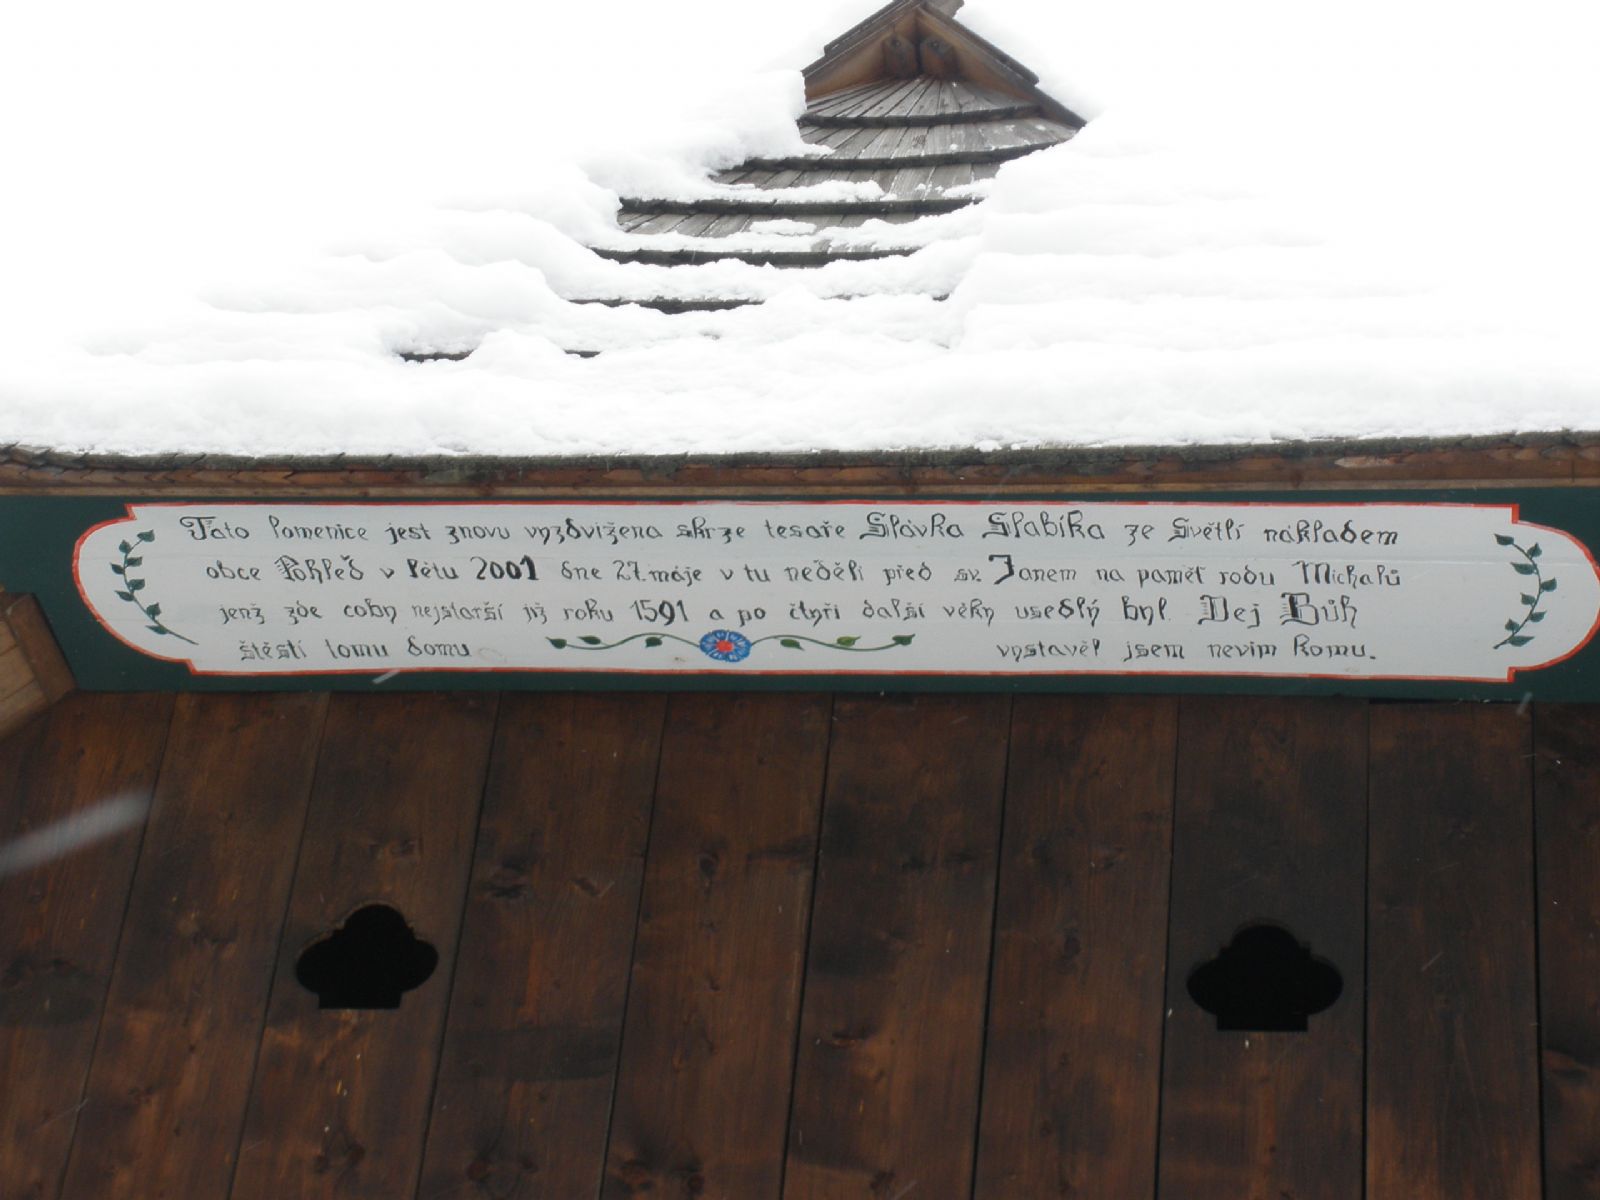 Tato lomenice jest znovu vyzdvižena skrze tesaře Slávka Slabíka ze Světlí nákladem
obce Pohleď v létu 2001 dne 27. máje v tu neděli před sv. Janem na paměť rodu Michalů
jenž zde coby nejstarší již roku 1591 a po čtyři další věky usedlý byl. Dej Bůh
štěstí tomu domu vystavěl jsem nevim komu.